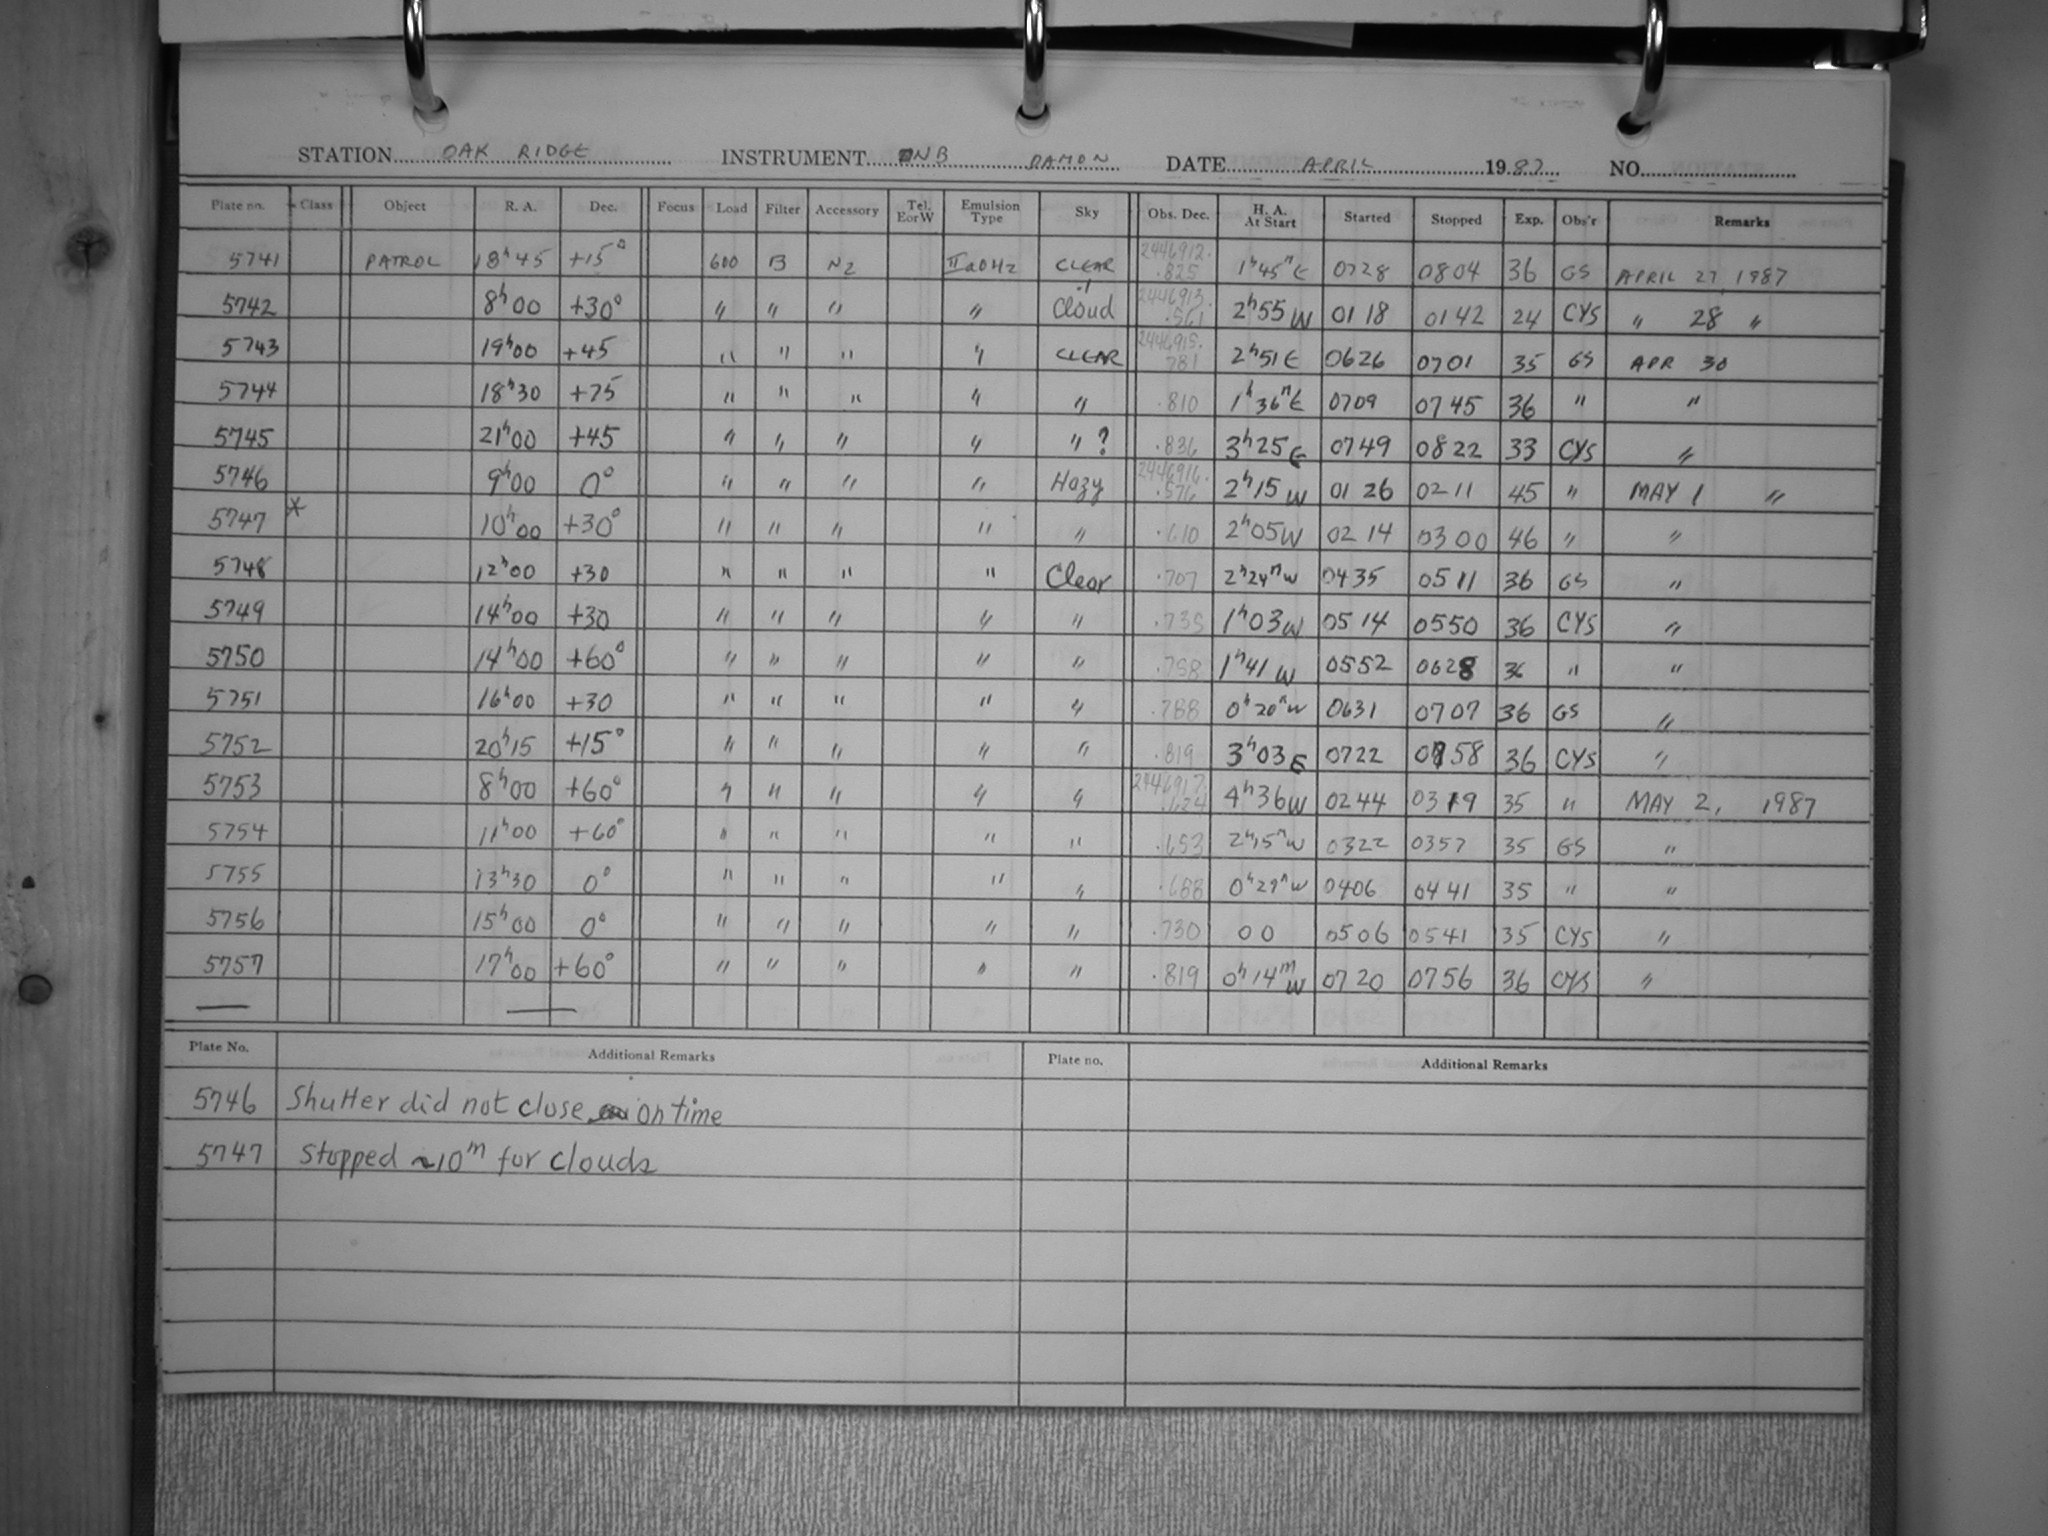 STATION OAK RIDGE INSTRUMENT DNB DAMON DATE APRIL 1987 NO.
Plate no. Class Object R. A. Dec. Focus Load Filter Accessory Tel. E or W Emulsion Type Sky Obs. Dec. H. A. At Start Started Stopped Exp. Obs'r Remarks
5741 PATROL 18h45 +15° 600 B N2 IIaOH2 CLEAR 2446912. .825 1h45m E 0728 0804 36 GS APRIL 27, 1987
5742 8h00 +30° " " " " Cloud 2446913. .561 2h55 W 0118 0142 24 CYS " 28 "
5743 19h00 +45 " " " " CLEAR 2446915. 781 2h51 E 0626 0701 35 GS APR 30
5744 18h30 +75 " " " " " .810 1h36m E 0709 0745 36 " "
5745 21h00 +45 " " " " " ? .836 3h25 E 0749 0822 33 CYS "
5746 9h00 0° " " " " Hazy 2446916. .576 2h15 W 0126 0211 45 " MAY 1 "
5747 * 10h00 +30° " " " " " .610 2h05 W 0214 0300 46 " "
5748 12h00 +30 " " " " Clear .707 2h24m W 0435 0511 36 GS "
5749 14h00 +30 " " " " " .735 1h03 W 0514 0550 36 CYS "
5750 14h00 +60° " " " " " .758 1h41 W 0552 0628 36 " "
5751 16h00 +30 " " " " " .788 0h20m W 0631 0707 36 GS "
5752 20h15 +15° " " " " " .819 3h03 E 0722 0758 36 CYS "
5753 8h00 +60° " " " " " 2446917. .624 4h36 W 0244 0319 35 " MAY 2, 1987
5754 11h00 +60° " " " " " .653 2h15m W 0322 0357 35 GS "
5755 13h30 0° " " " " " .688 0h29m W 0406 0441 35 " "
5756 15h00 0° " " " " " .730 00 0506 0541 35 CYS "
5757 17h00 +60° " " " " " .819 0h14m W 0720 0756 36 CYS "
— —
Plate No. Additional Remarks Plate no. Additional Remarks
5746 Shutter did not close on time
5747 Stopped ~10m for clouds